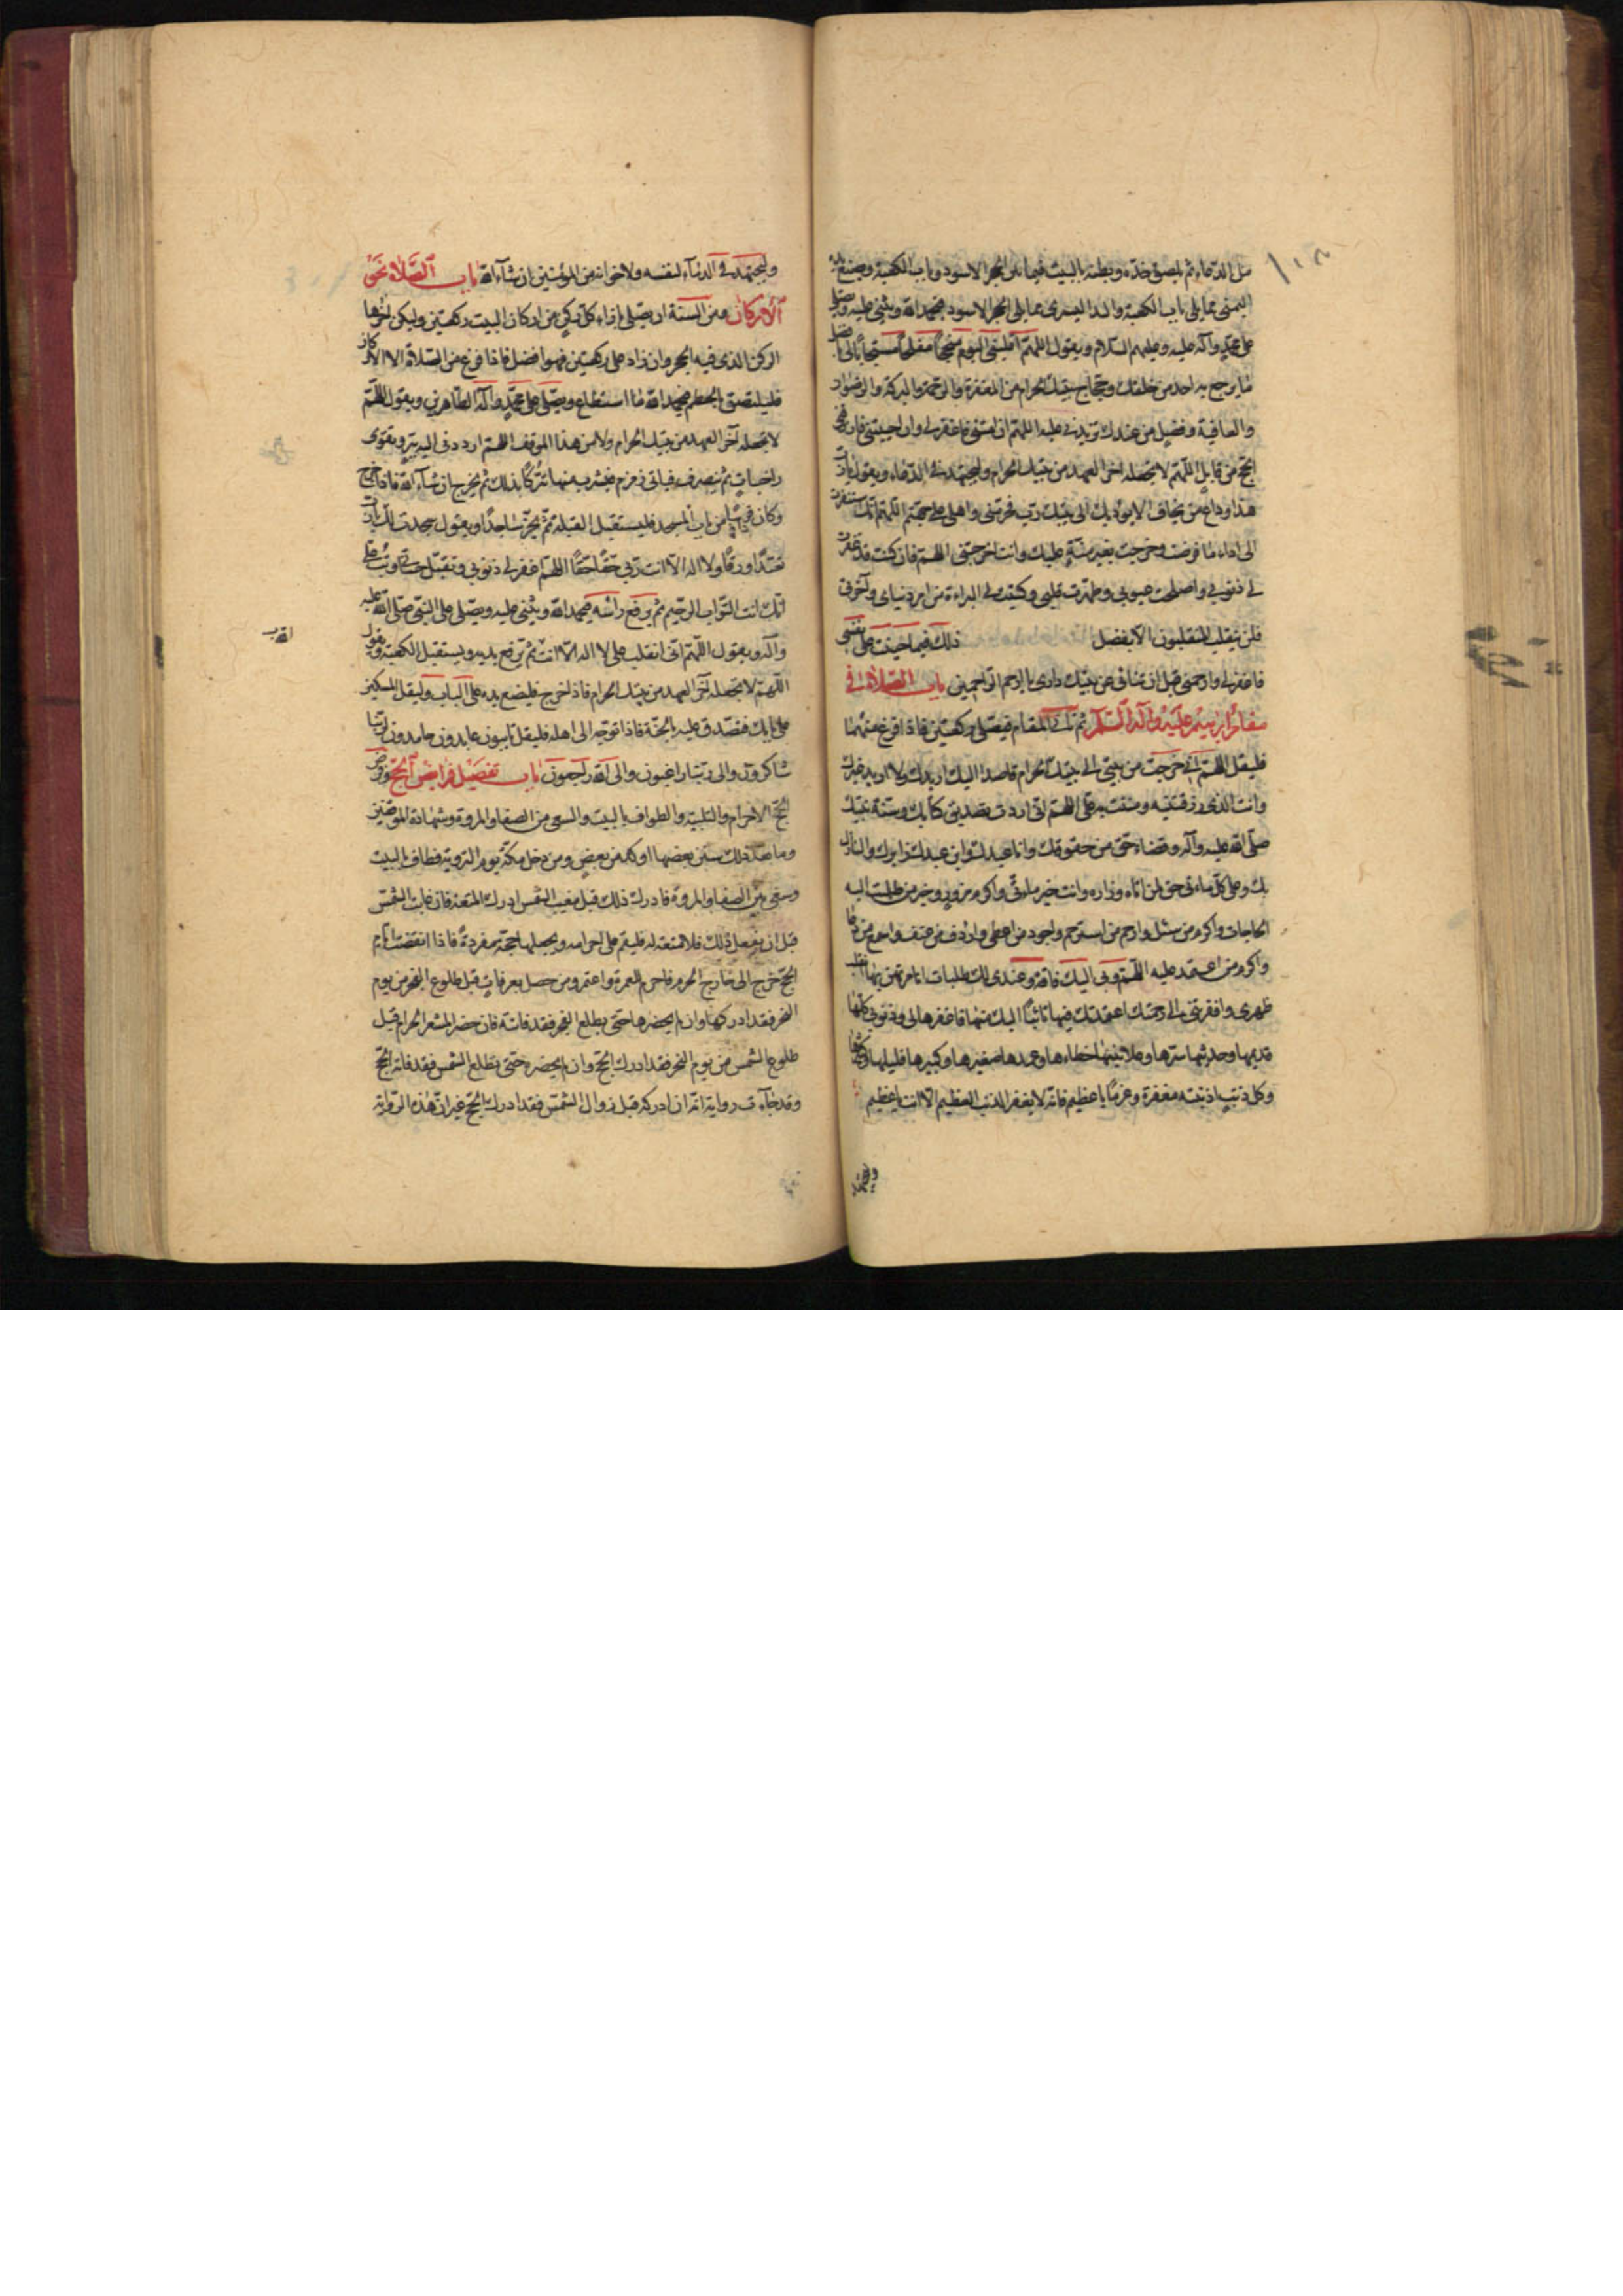 من الدعاء ثم يلصق خده وبطنه بالبيت فيما بين الحجر الاسود وباب الكعبة ويضع يده
اليمنى مما يلي باب الكعبة واليد اليسرى مما يلي الحجر الاسود فيحمد الله ويثني عليه ويصلي
على محمد وآله عليه وعليهم السلام ويقول اللهم اقلبني اليوم منجحا مفلحا مستجابا لي بافضل
ما يرجع به احد من خلقك وحجاج بيتك الحرام من المغفرة والرحمة والبركة والرضوان
والعافية وفضل من عندك تزيدني عليه اللهم ان امتني فاغفر لي وان احييتني فارزقني
الحج من قابل اللهم لا تجعله اخر العهد من بيتك الحرام وليجتهد في الدعاء ويقول يا رب
هذا وداع من يخاف الا يؤوب الى بيتك رب فحرمني واهلي على جهنم اللهم انك استنفرت
الى اداء ما فرضت وخرجت بغير منة عليك وانت اخرجتني اللهم فان كنت قد غفرت
لي ذنوبي واصلحت عيوبي وطهرت قلبي وكفيتني البراءة من امر دنياي وآخرتي
فلن ينقلب المنقلبون الا بفضل ذلك فيما جنيت على نفسي
فاغفر لي وارحمني قبل ان تنائى عن بيتك داري يا ارحم الراحمين باب الصلاة في
مقام ابرهيم عليه وآله السلام ثم يأتي المقام فيصلي ركعتين فاذا فرغ منهما
فليقل اللهم اني خرجت من بيتي الى بيتك الحرام قاصدا اليك اريدك ولا اريد غيرك
وانت الذي رزقتنيه ومننت به علي اللهم اني اردت تصديق كتابك وسنة نبيك
صلى الله عليه وآله وقضاء حق من حقوقك وانا عبدك وابن عبدك زايرك والنازل
بك وعلى كل مأتي حق لمن اتاه وزاره وانت خير مأتي واكرم مزور وخير من طلبت اليه
الحاجات واكرم من سئل وارحم من استرحم واجود من اعطى وارأف من عفى واسمع من دعي
واكرم من اعتمد عليه اللهم وبي اليك فاقة وعندي لك طلبات انا مرتهن بها قد اثقلت
ظهري وافقرتني الى رحمتك اعتمدتك فيها تائبا اليك منها فاغفرها لي وذنوبي كلها
قديمها وحديثها سرها وعلانيتها خطاءها وعمدها صغيرها وكبيرها قليلها وكثيرها
وكل ذنب اذنبته مغفرة وعزما يا عظيم فانه لا يغفر الذنب العظيم الا انت يا عظيم
وليجتهد في الدعآء لنفسه ولاخوانه من المؤمنين ان شآء الله باب الصلاة نحو
الاركان ومن السنة ان يصلي بازاء كل ركن من اركان البيت ركعتين وليكن اخرها
الركن الذي فيه الحجر وان زاد على ركعتين فهو افضل فاذا فرغ من الصلاة الى الاركان
فليلتصق بالحطيم فيحمد الله ما استطاع ويصلي على محمد وآله الطاهرين ويقول اللهم
لا تجعله آخر العهد من بيتك الحرام ولا من هذا الموقف اللهم ارددني اليه ببر وتقوى
واخبات ثم ينصرف فياتي زمزم فيشرب منها تبركا بذلك ثم يخرج ان شآء الله فاذا خرج
وكان في باب من باب المسجد فليستقبل القبلة ثم يخر ساجدا ويقول سجدت لك يا رب
تعبدا ورقا ولا اله الا انت ربي حقا حقا اللهم اغفر لي ذنوبي وتقبل حسناتي وتب علي
انك انت التواب الرحيم ثم يرفع رأسه فيحمد الله ويثني عليه ويصلي على النبي صلى الله عليه
وآله ويقول اللهم اني انقلب على لا اله الا انت ثم يرفع يديه ويستقبل الكعبة ويقول
اللهم لا تجعله آخر العهد من بيتك الحرام فاذا خرج فليضع يده على الباب وليقل المسكين
على بابك فتصدق عليه بالجنة فاذا توجه الى اهله فليقل تايبون عابدون حامدون لربنا
شاكرون والى ربنا راغبون والى الله راجعون باب تفصيل فرايض الحج وفرض
الحج الاحرام والتلبية والطواف بالبيت والسعي بين الصفا والمروة وشهادة الموقفين
وما بعد ذلك سنن بعضها اوكد من بعض ومن دخل مكة يوم التروية فطاف بالبيت
وسعى بين الصفا والمروة فادرك ذلك قبل مغيب الشمس ادرك المتعة فان غابت الشمس
قبل ان يفعل ذلك فلا متعة له فليقم على احرامه ويجعلها حجة مفردة فاذا انقضت ايام
الحج خرج الى خارج الحرم فاحرم للعمرة واعتمر ومن حصل بعرفات قبل طلوع الفجر من يوم
النحر فقد ادركها وان لم يحضرها حتى يطلع الفجر فقد فاتته فان حضر المشعر الحرام قبل
طلوع الشمس من يوم النحر فقد ادرك الحج وان لم يحضره حتى تطلع الشمس فقد فاته الحج
وقد جآءت رواية انه ان ادركه قبل زوال الشمس فقد ادرك الحج غير ان هذه الرواية